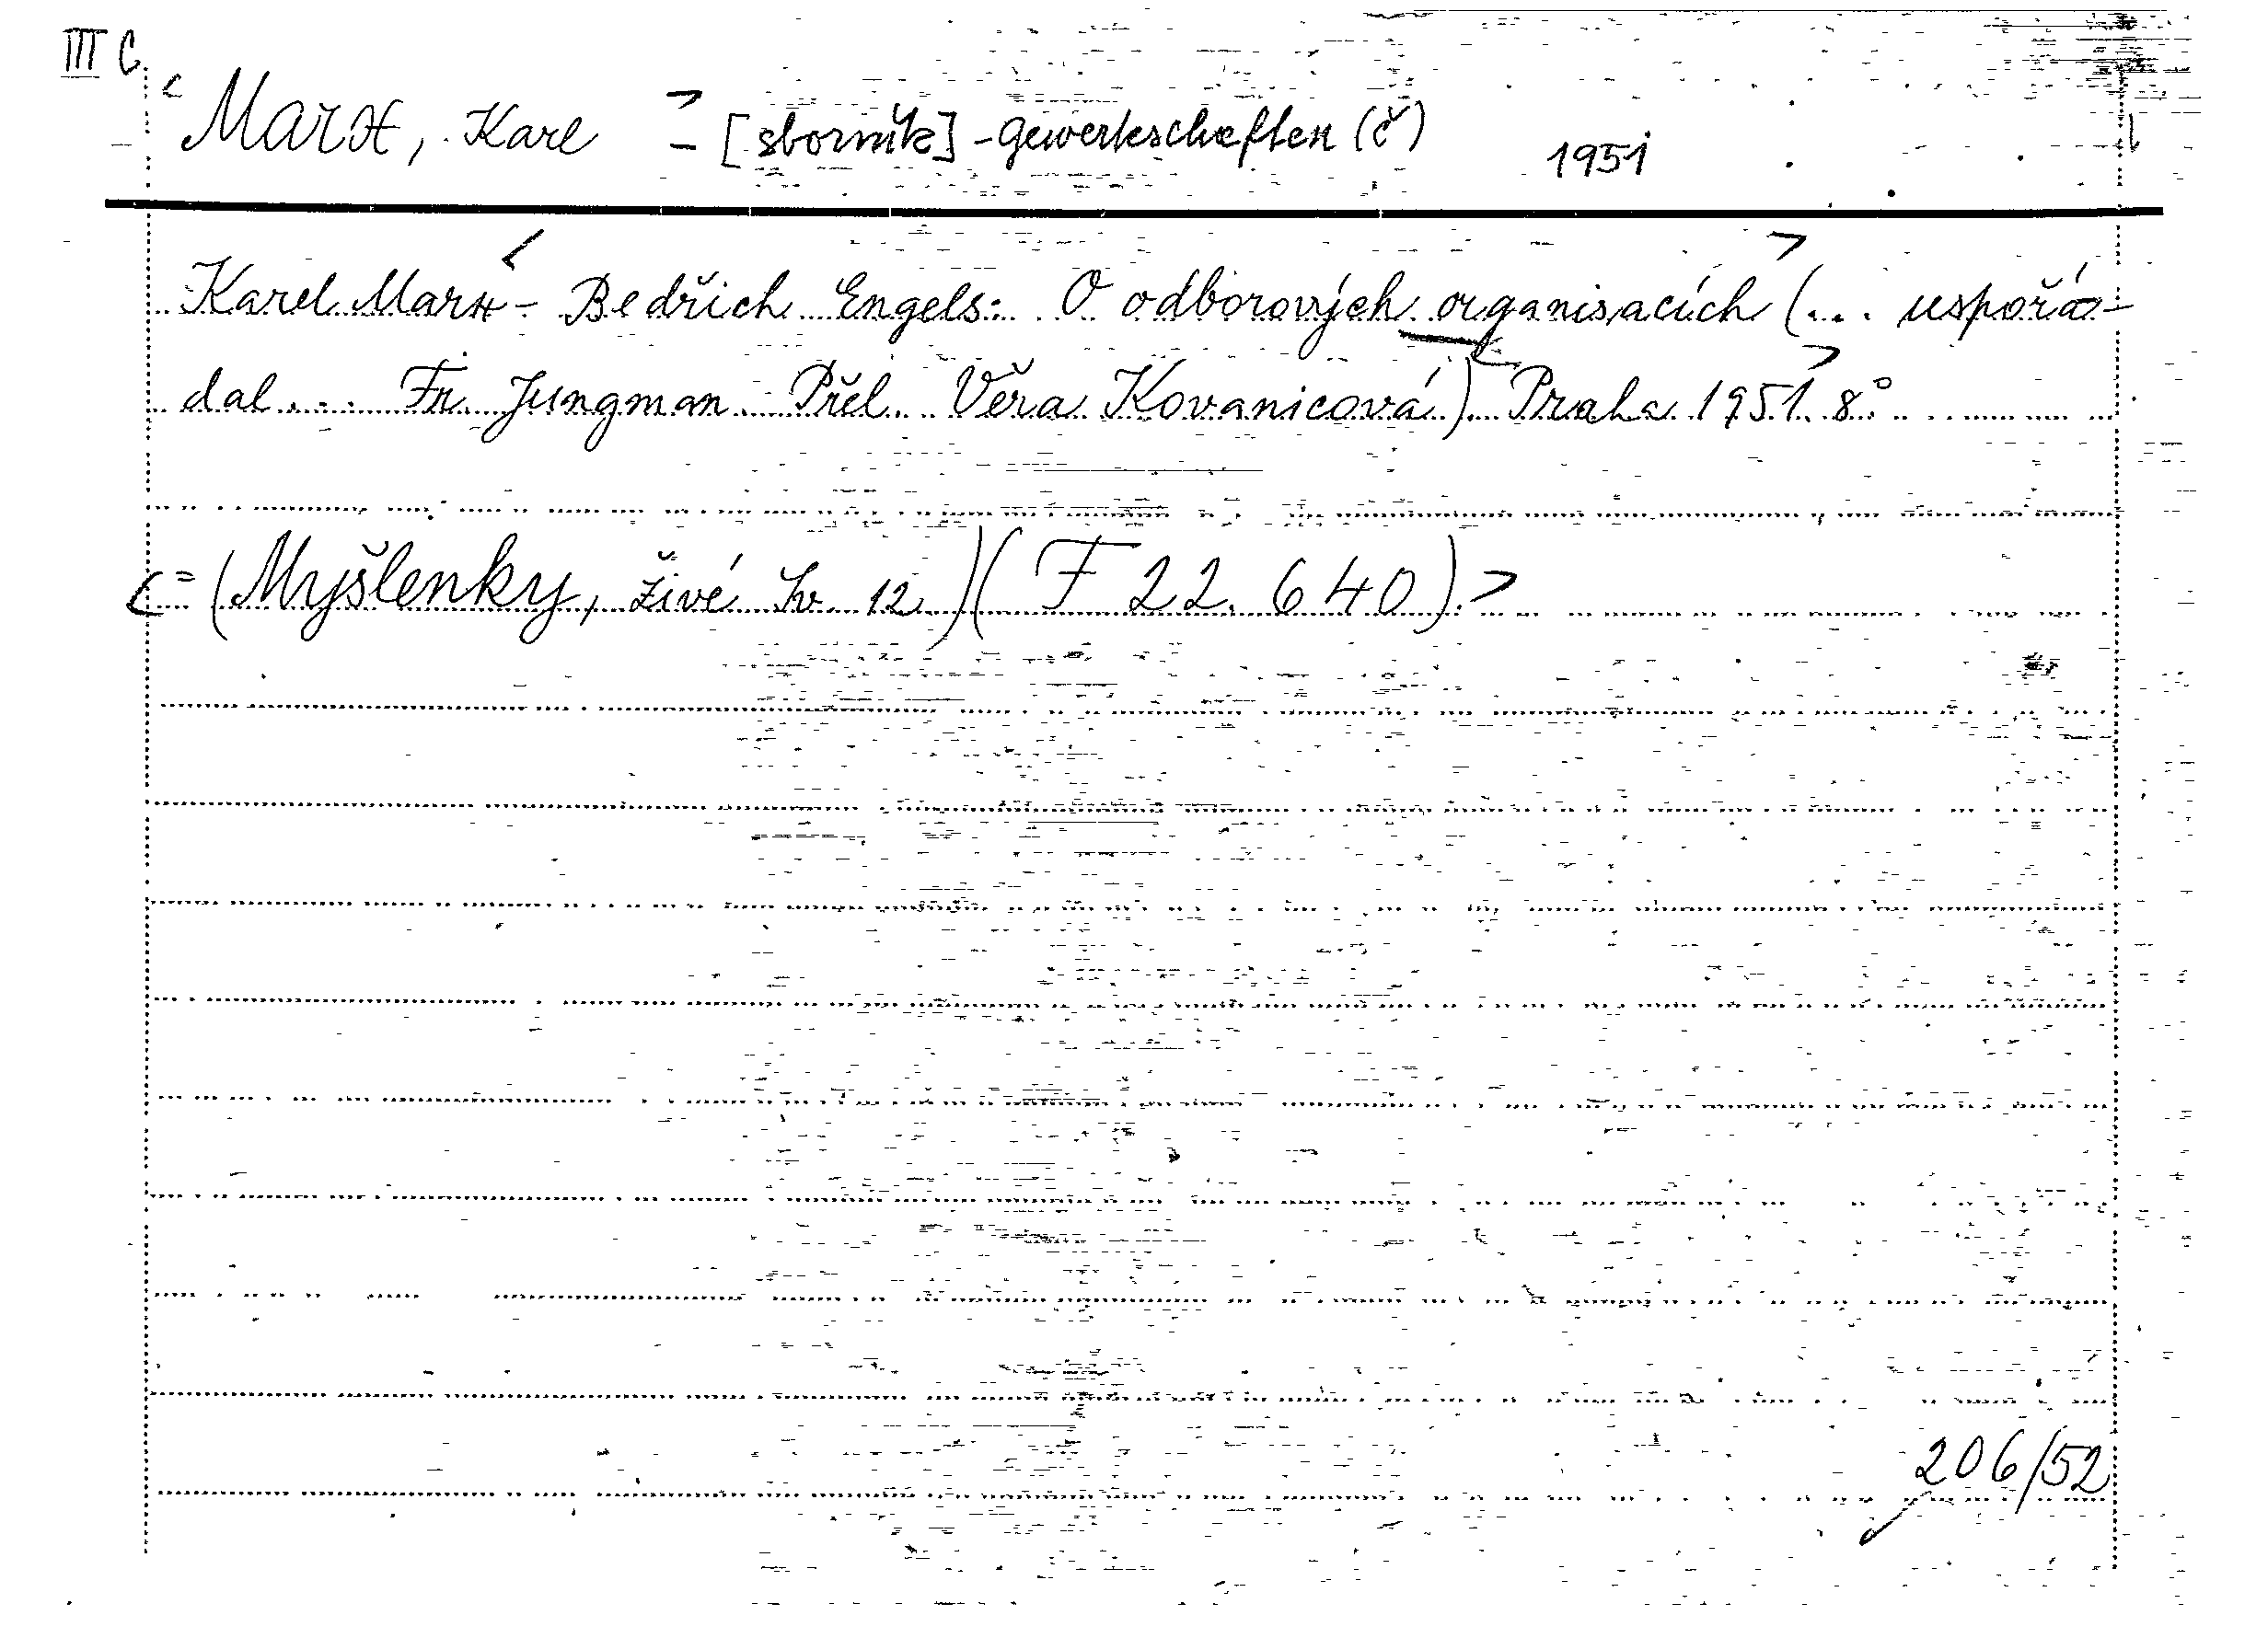 III C
< Marx, Karl > = [sborník] - Gewerkschaften (č) 1951
Karel Marx - < Bedřich Engels: O odborových organisacích > (... uspořá-
dal... Fr. Jungman. Přel. Věra Kovanicová) < Praha 1951. > 8°
< = (Myšlenky, živé Sv. 12.) (F 22.640). >
206/52